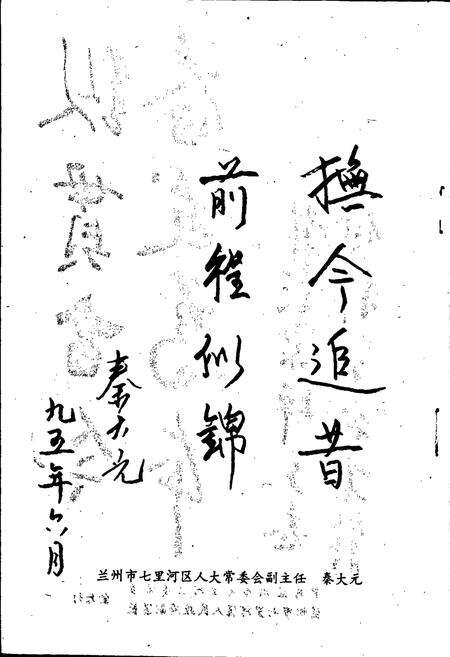 撫今追昔
前程似錦
秦大元
九五年六月
兰州市七里河区人大常委会副主任 秦大元